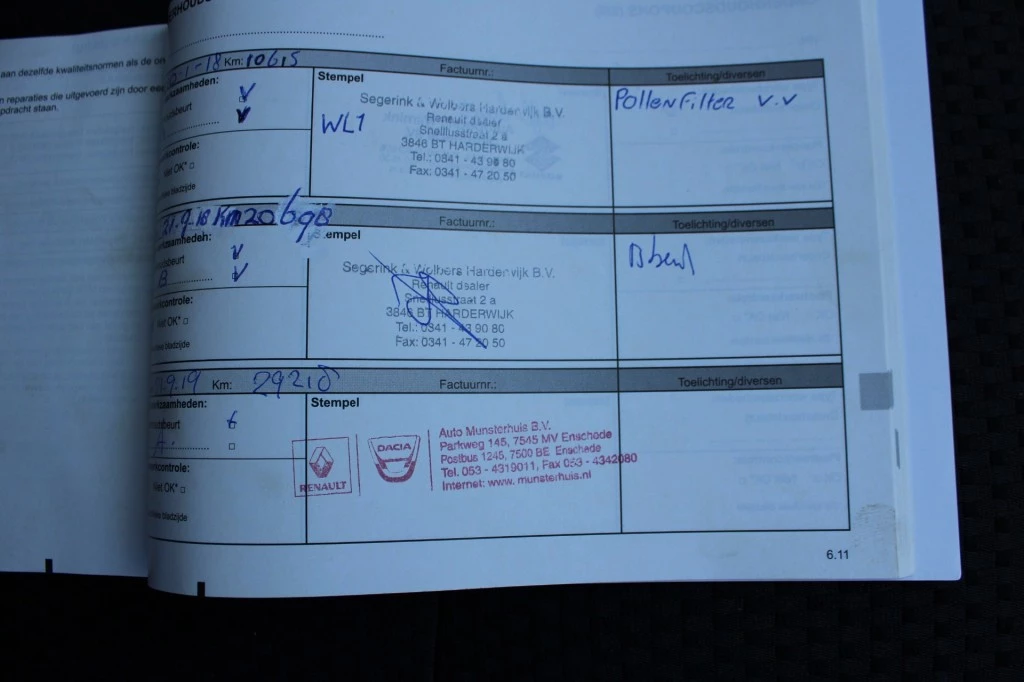 aan dezelfde kwaliteitsnormen als de
n reparaties die uitgevoerd zijn door
pdracht staan.
-18 Km: 10615 Factuurnr.: Toelichting/diversen
kzaamheden:
sbeurt
controle:
Niet OK*
bladzijde
Stempel
WL1
Segerink & Wolbers Harderwijk B.V.
Renault dealer
Snelliusstraat 2 a
3846 BT HARDERWIJK
Tel.: 0341 - 43 90 80
Fax: 0341 - 47 20 50
Pollenfilter v.v
21.9.18 Km 20698 Factuurnr.: Toelichting/diversen
kzaamheden:
sbeurt
B
controle:
Niet OK*
bladzijde
Stempel
Segerink & Wolbers Harderwijk B.V.
Renault dealer
Snelliusstraat 2 a
3846 BT HARDERWIJK
Tel.: 0341 - 43 90 80
Fax: 0341 - 47 20 50
.9.19 Km: 29218 Factuurnr.: Toelichting/diversen
kzaamheden:
sbeurt
controle:
Niet OK*
bladzijde
Stempel
RENAULT
DACIA
Auto Munsterhuis B.V.
Parkweg 145, 7545 MV Enschede
Postbus 1245, 7500 BE Enschede
Tel. 053 - 4319011, Fax 053 - 4342080
Internet: www.munsterhuis.nl
6.11